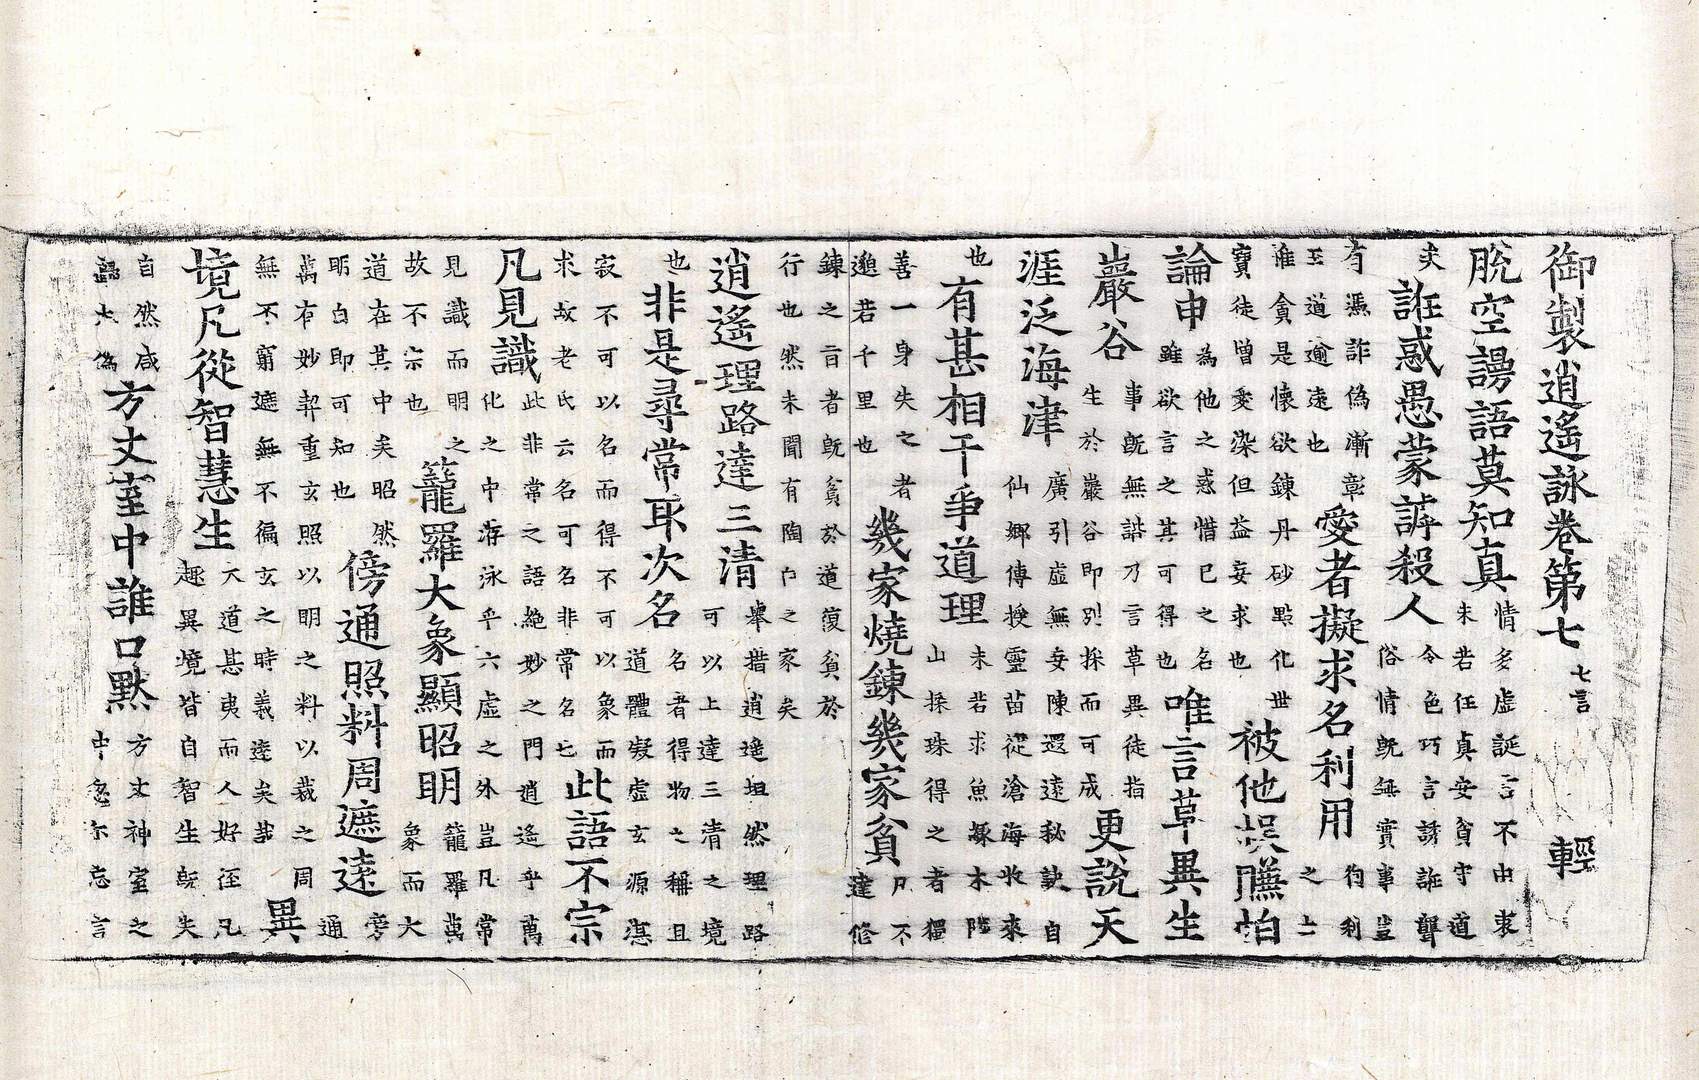 御製逍遙詠卷第七 七言 輕
脫空謾語莫知真 情多虛誕言不由衷
未若任真安貧守道
矣 誑惑愚蒙謼殺人 令色巧言誘誑聾
俗情既無實事豈
有憑詐偽漸彰
至道逾遠也 愛者擬求名利用 徇利
之士
誰貪是懷欲鍊丹砂點化世
寶徒增愛染但益妄求也 被他悞賺怕
論申 為他之惑惜已之名
雖欲言之其可得也 唯言草異生
巖谷 事既無諧乃言草異徒指
生於巖谷即別採而可成 更說天
涯泛海津 廣引虛無妄陳還遠秘訣自
仙鄉傳授靈苗從滄海收來
也 有甚相干爭道理 未若求魚緣木陸
山採珠得之者獨
善一身失之者
邈若千里也 幾家燒鍊幾家貧 凡不
達修
鍊之旨者既貧於道復貧於
行也然未聞有陶白之家矣
逍遙理路達三清 舉措逍遙坦然理路
可以上達三清之境
也 非是尋常取次名 名者得物之稱且
道體凝虛玄源湛
寂不可以名而得不可以象而
求故老氏云名可名非常名也 此語不宗
凡見識 此非常之語絕妙之門逍遙乎萬
化之中游泳乎六虛之外豈凡常
見識而明之
故不宗也 籠羅大象顯昭明 籠羅萬
象而大
道在其中矣昭然
昞白即可知也 傍通照料周遮遠 旁
通
萬有妙契重玄照以明之料以裁之周
無不窮遮無不徧玄之時義遠矣哉 異
境凡從智慧生 大道甚夷而人好徑凡
趣異境皆自智生既失
自然咸
歸大偽 方丈室中誰口默 方丈神室之
中忽尒忘言